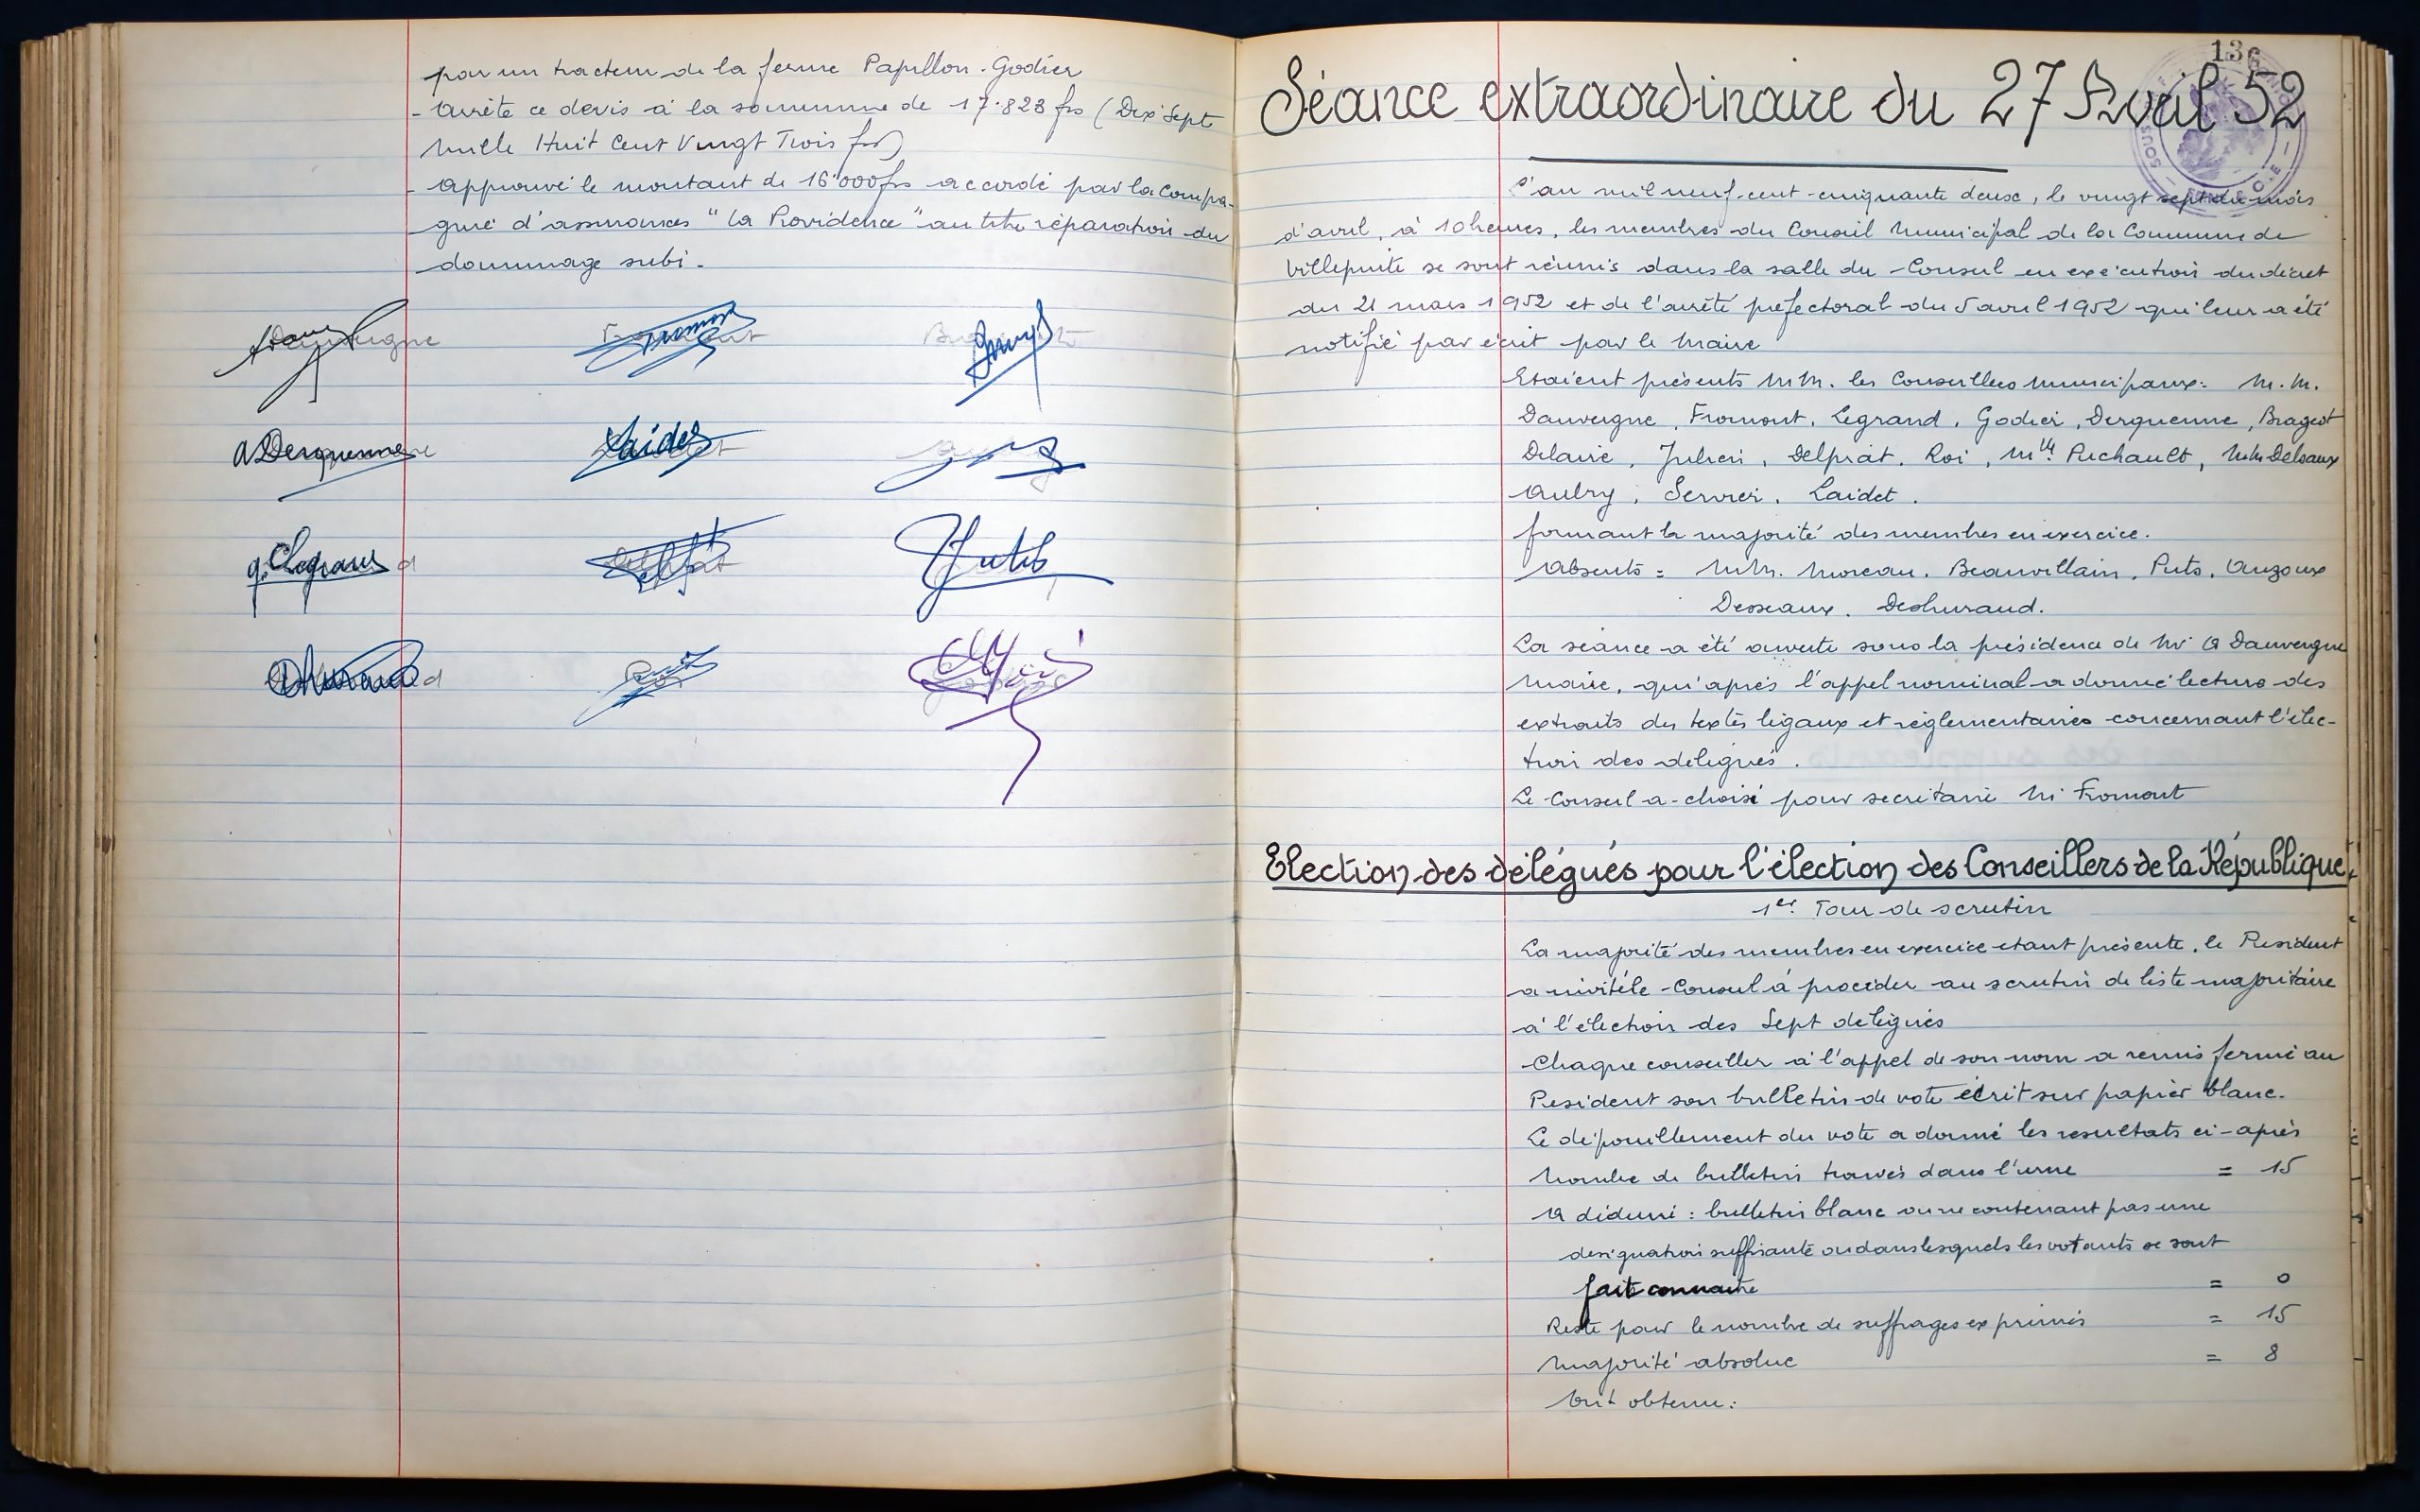 par un tracteur de la ferme Papillon-Godier
- Arrête ce devis à la somme de 17.823 frs (Dix Sept
Mille Huit Cent Vingt Trois frs)
- Approuvé le montant de 16.000 frs accordé par la Compa-
gnie d'assurances "La Providence" au titre réparation du
dommage subi.
Dauvergne Fromont
A Derquenne Laidet
g. Legrand Delprat
Roi
136
Séance extraordinaire du 27 Avril 52
L'an mil neuf cent cinquante deux, le vingt sept du mois
d'avril, à 10 heures, les membres du Conseil Municipal de la Commune de
Villepinte se sont réunis dans la salle du Conseil en exécution du décret
du 21 mars 1952 et de l'arrêté préfectoral du 5 avril 1952 qui leur a été
notifié par écrit par le Maire
Etaient présents MM. les Conseillers Municipaux: M.M.
Dauvergne, Fromont, Legrand, Godier, Derquenne, Bragest
Delarie, Julien, Delprat, Roi, Mlle Puchault, MM Delsaux
Aubry, Servier, Laidet.
formant la majorité des membres en exercice.
Absents = MM. Moreau, Beauvillain, Puts, Auzoux
Desseaux, Deshuraud.
La séance a été ouverte sous la présidence de Mr A Dauvergne
Maire, qui après l'appel nominal a donné lecture des
extraits des textes légaux et réglementaires concernant l'élec-
tion des délégués.
Le Conseil a choisi pour secrétaire Mr Fromont
Election des délégués pour l'élection des Conseillers de la République
1er Tour de scrutin
La majorité des membres en exercice étant présente, le President
a invité le Conseil à procéder au scrutin de liste majoritaire
à l'élection des Sept délégués
Chaque conseiller à l'appel de son nom a remis fermé au
President son bulletin de vote écrit sur papier blanc.
Le dépouillement du vote a donné les resultats ci-après
Nombre de bulletin trouvés dans l'urne = 15
A déduire : bulletin blanc ou ne contenant pas une
designation suffisante ou dans lesquels les votants se sont
fait connaitre = 0
Reste pour le nombre de suffrages exprimés = 15
Majorité absolue = 8
Ont obtenu :